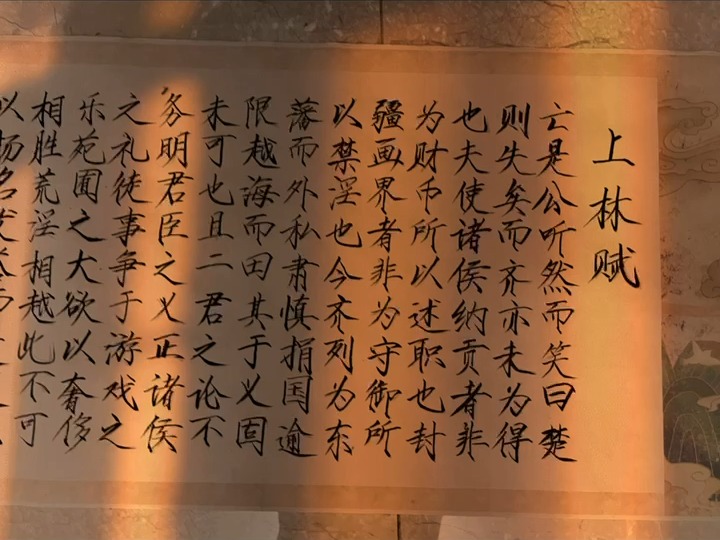 上林赋
亡是公听然而笑曰楚
则失矣而齐亦未为得
也夫使诸侯纳贡者非
为财币所以述职也封
疆画界者非为守御所
以禁淫也今齐列为东
藩而外私肃慎捐国逾
限越海而田其于义固
未可也且二君之论不
务明君臣之义正诸侯
之礼徒事争于游戏之
乐苑囿之大欲以奢侈
相胜荒淫相越此不可
以扬名发